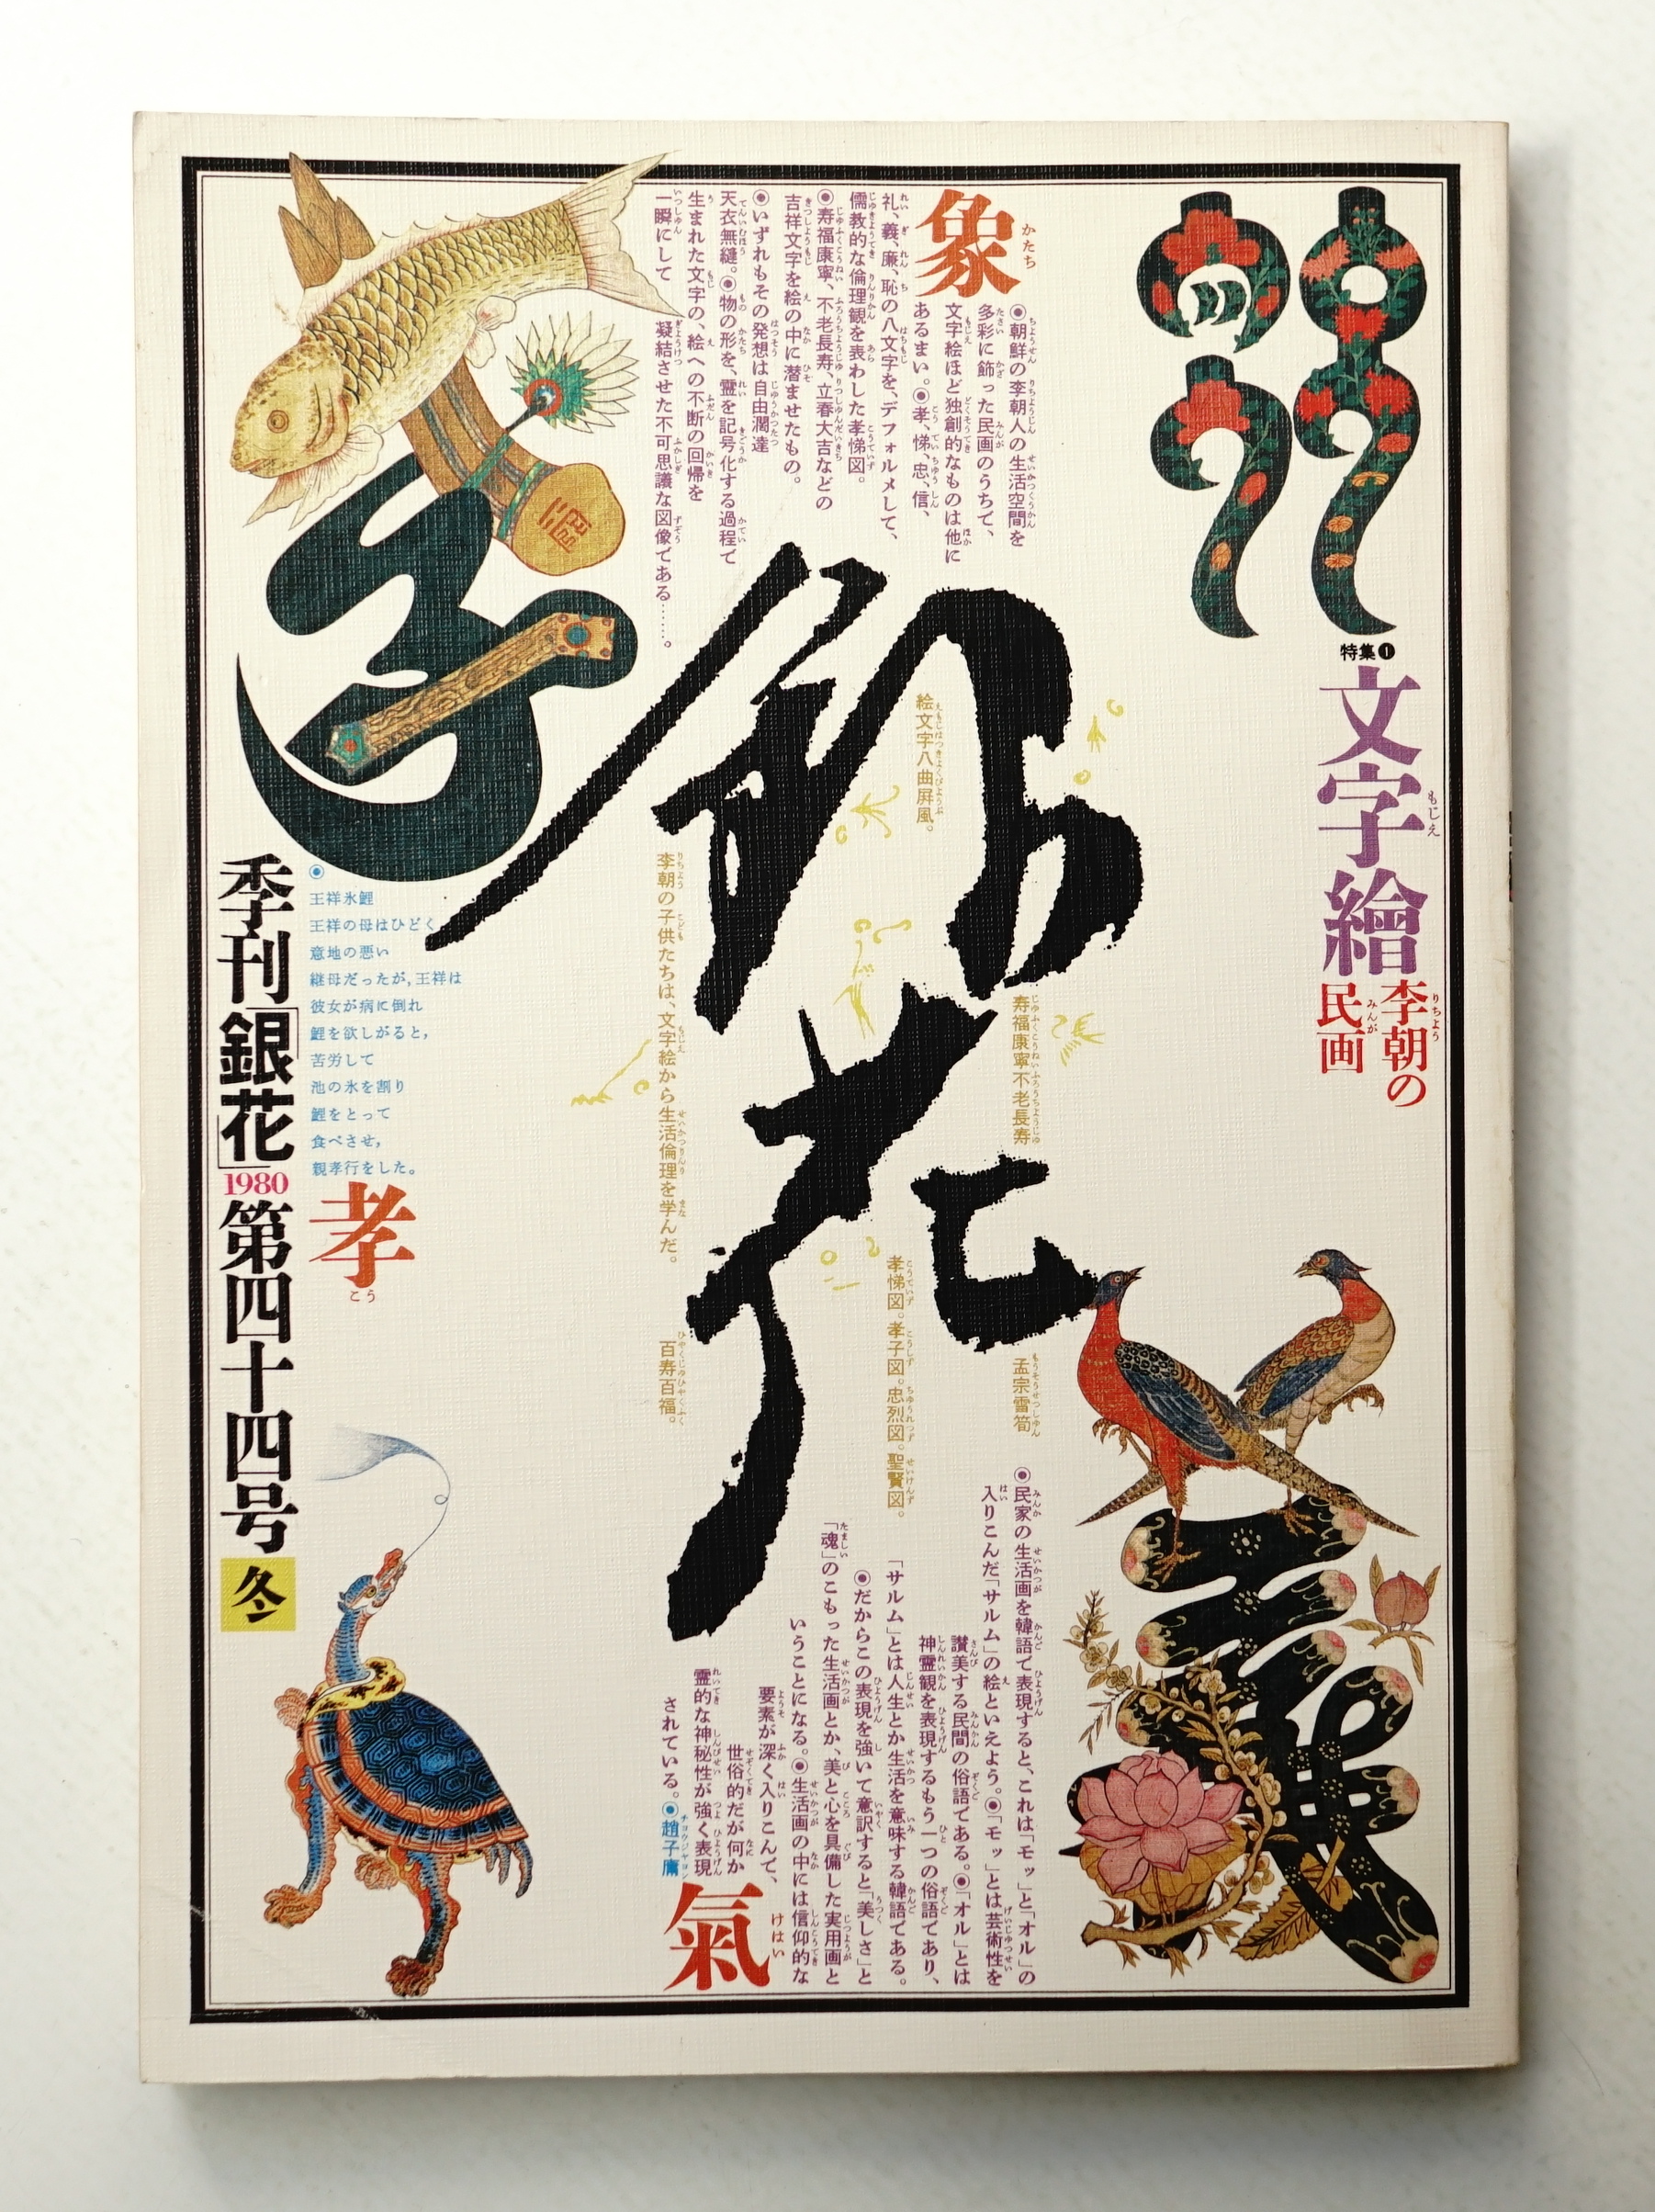 特集❶
文字繪
もじえ
李朝の
りちょう
民画
みんが
象
かたち
◉朝鮮の李朝人の生活空間を
多彩に飾った民画のうちで、
文字絵ほど独創的なものは他に
あるまい。◉孝、悌、忠、信、
礼、義、廉、恥の八文字を、デフォルメして、
儒教的な倫理観を表わした孝悌図。
◉寿福康寧、不老長寿、立春大吉などの
吉祥文字を絵の中に潜ませたもの。
◉いずれもその発想は自由濶達
天衣無縫。◉物の形を、霊を記号化する過程で
生まれた文字の、絵への不断の回帰を
一瞬にして
凝結させた不可思議な図像である……。
銀花
絵文字八曲屛風。
寿福康寧不老長寿
李朝の子供たちは、文字絵から生活倫理を学んだ。
孝悌図。孝子図。忠烈図。聖賢図。
孟宗雪筍
百寿百福。
◉
王祥氷鯉
王祥の母はひどく
意地の悪い
継母だったが,王祥は
彼女が病に倒れ
鯉を欲しがると,
苦労して
池の氷を割り
鯉をとって
食べさせ,
親孝行をした。
孝
こう
季刊「銀花」1980第四十四号
冬
◉民家の生活画を韓語で表現すると、これは「モッ」と「オル」の
入りこんだ「サルム」の絵といえよう。◉「モッ」とは芸術性を
讃美する民間の俗語である。◉「オル」とは
神霊観を表現するもう一つの俗語であり、
「サルム」とは人生とか生活を意味する韓語である。
◉だからこの表現を強いて意訳すると「美しさ」と
「魂」のこもった生活画とか、美と心を具備した実用画と
いうことになる。◉生活画の中には信仰的な
要素が深く入りこんで、
世俗的だが何か
霊的な神秘性が強く表現
されている。◉趙子庸
氣
けはい